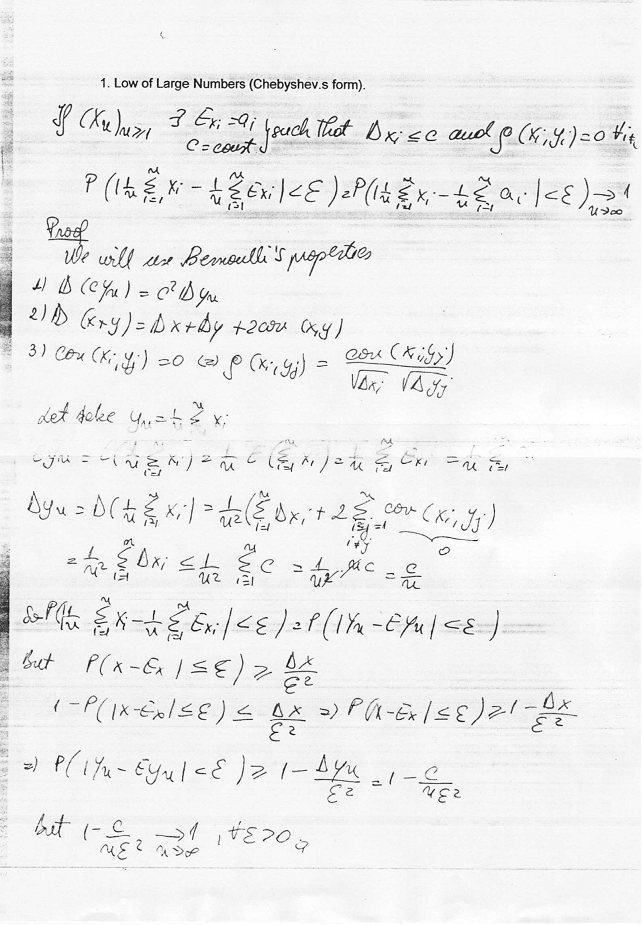 1. Low of Large Numbers (Chebyshev.s form).
If (Xn)n≥1 ∃ Exi = ai, c = const } such that Dxi ≤ c and ρ(xi, yi) = 0 ∀i≠
P(|1/n Σ_{i=1}^n xi − 1/n Σ_{i=1}^n Exi| < ε) = P(|1/n Σ_{i=1}^n xi − 1/n Σ_{i=1}^n ai| < ε) →_{n→∞} 1
Proof
We will use Bernoulli's properties
1) D(cyn) = c²Dyn
2) D(x+y) = Dx + Dy + 2cov(x,y)
3) cov(xi, yj) = 0 ⇔ ρ(xi, yj) = cov(xi, yj) / √Dxi √Dyj
Let take yn = 1/n Σ xi
Eyn = E(1/n Σ_{i=1}^n xi) = 1/n E(Σ_{i=1}^n xi) = 1/n Σ_{i=1}^n Exi = 1/n Σ_{i=1}^n
Dyn = D(1/n Σ_{i=1}^n xi) = 1/n² (Σ_{i=1}^n Dxi + 2 Σ_{i=j=1, i≠j}^n cov(xi, yj)) 0
= 1/n² Σ_{i=1}^n Dxi ≤ 1/n² Σ_{i=1}^n c = 1/n² nc = c/n
So P(|1/n Σ_{i=1}^n xi − 1/n Σ_{i=1}^n Exi| < ε) = P(|Yn − EYn| < ε)
But P(x − Ex | ≤ ε) ≥ Dx/ε²
1 − P(|x − Ex| ≤ ε) ≤ Dx/ε² ⇒ P(|x − Ex| ≤ ε) ≥ 1 − Dx/ε²
⇒ P(|Yn − Eyn| < ε) ≥ 1 − Dyn/ε² = 1 − c/nε²
but 1 − c/nε² →_{n→∞} 1, ∀ε>0